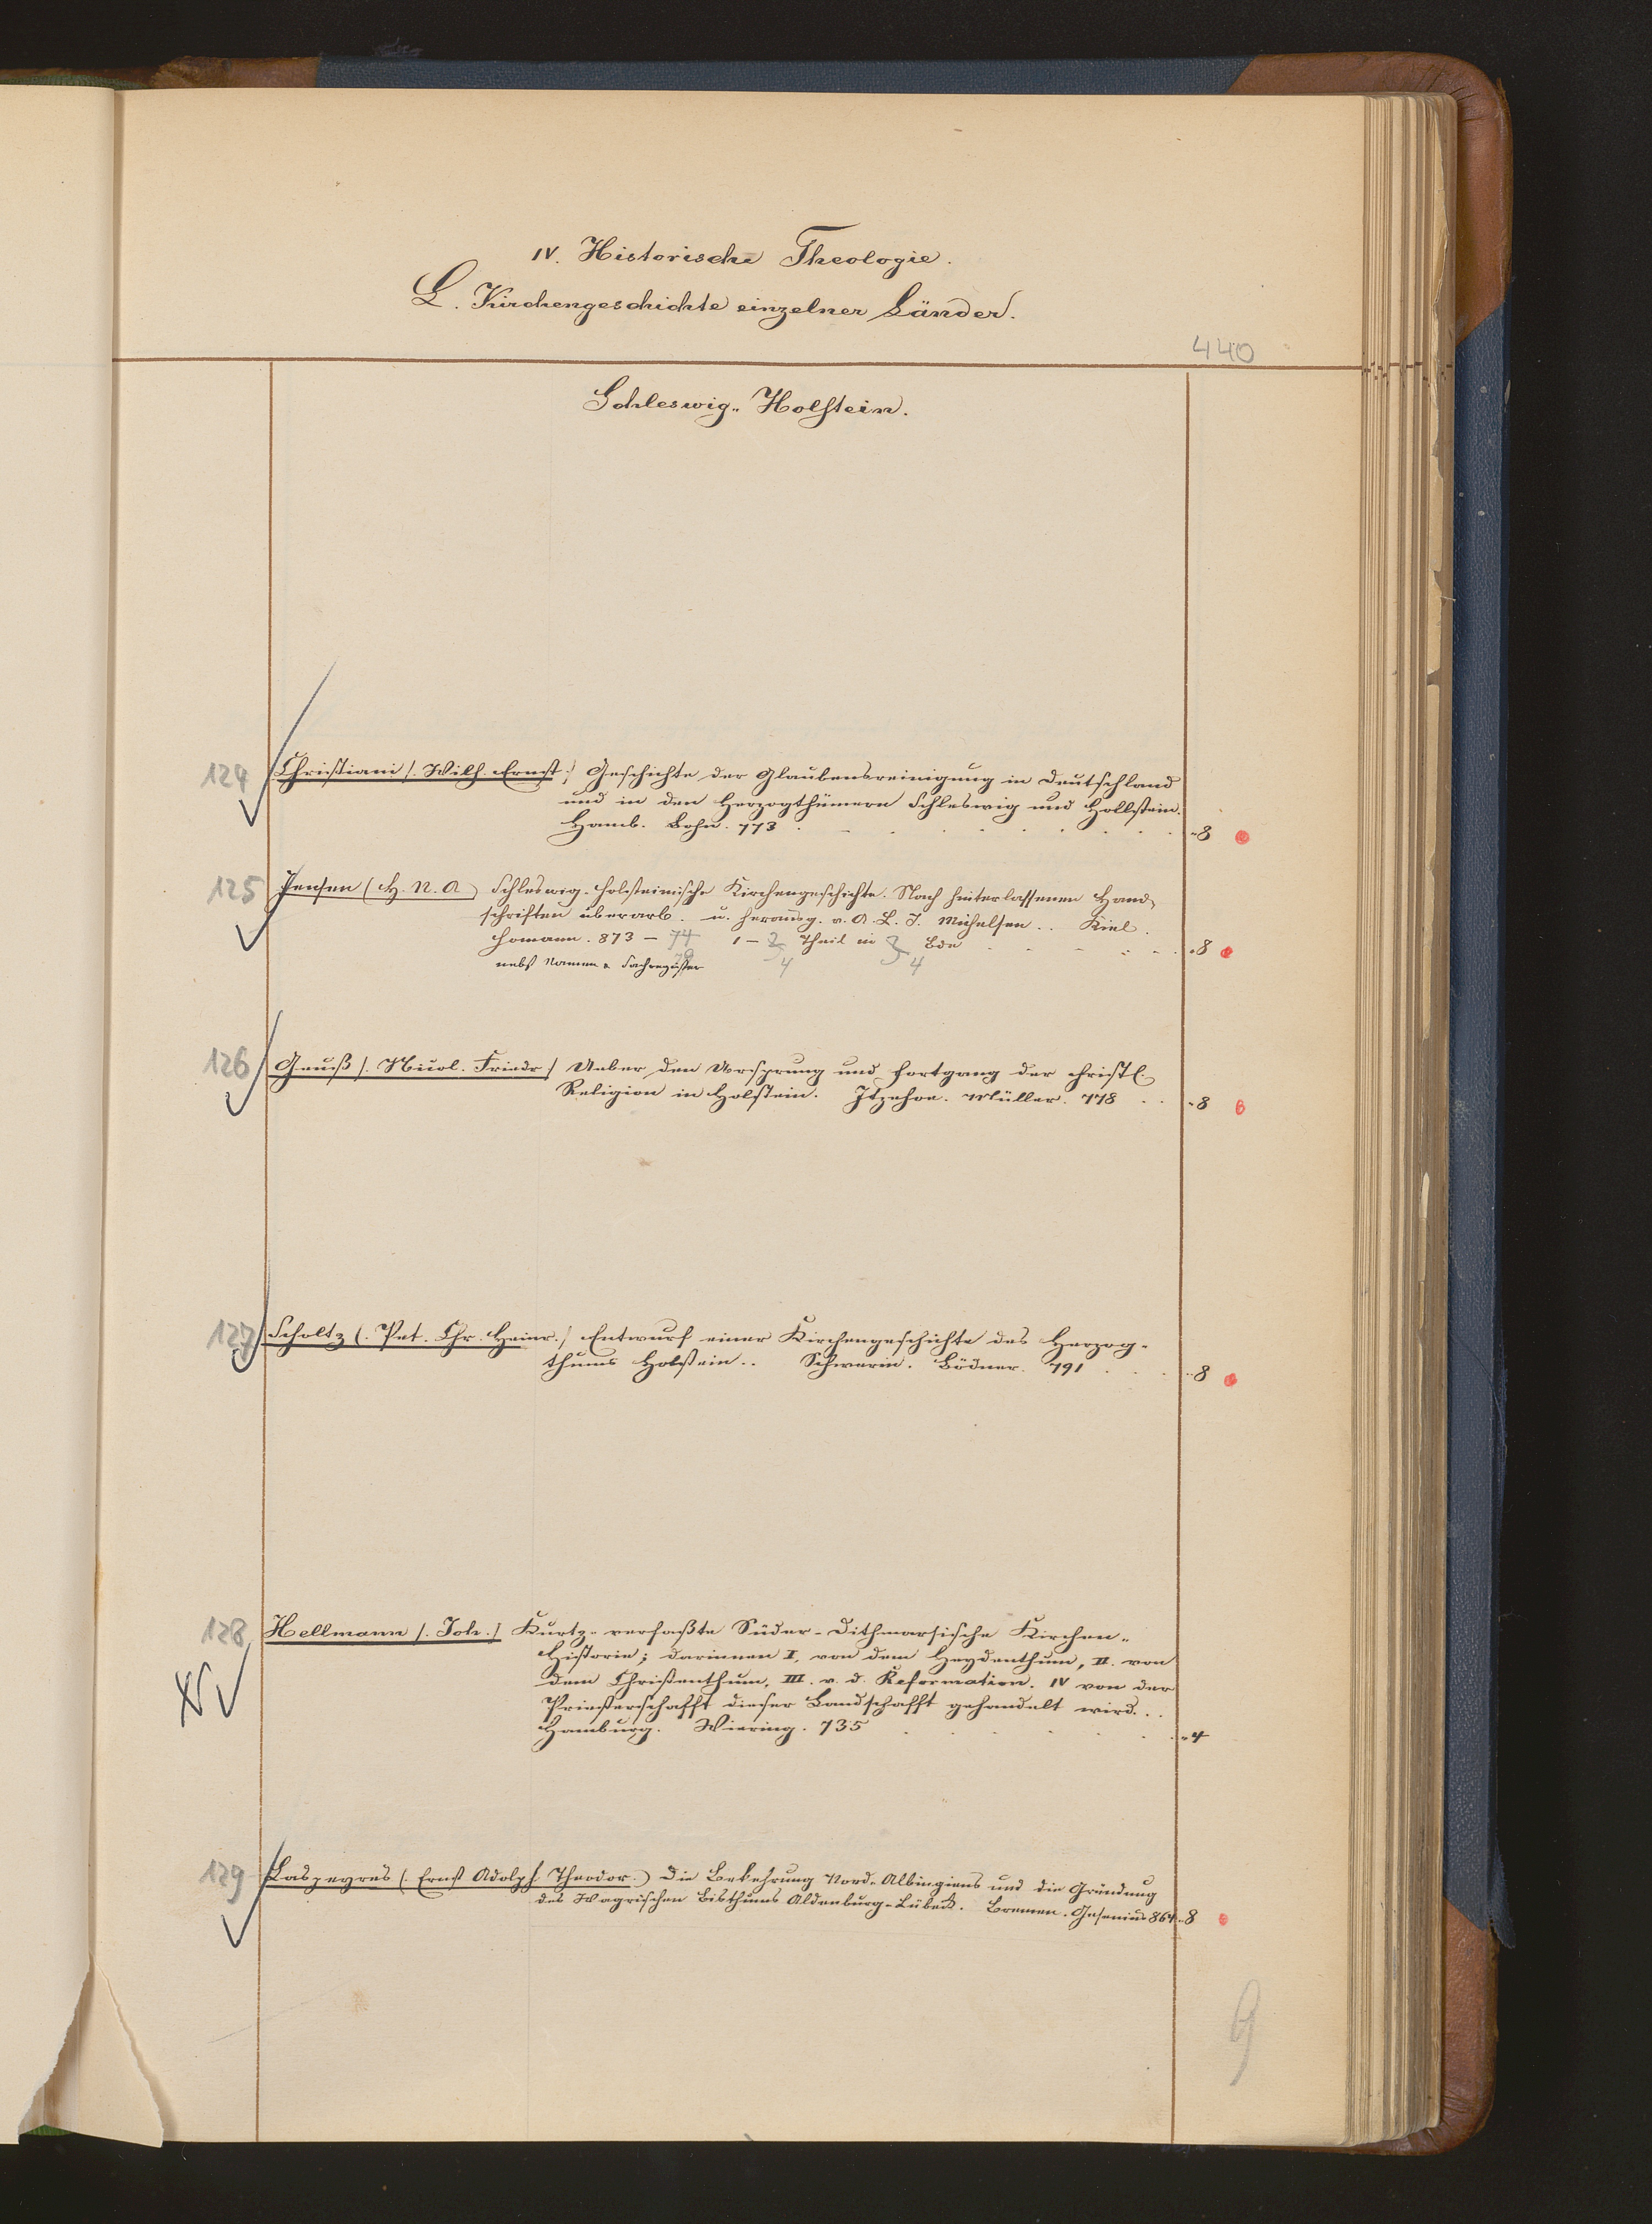 IV. Historische Theologie.
L. Kirchengeschichte einzelner Länder.
440
Schleswig-Holstein.
124 Christiani (. Wilh. Ernst.) Geschichte der Glaubensreinigung in Deutschland
und in den Herzogthümern Schleswig und Hollstein.
Hamb. Bohn. 773 . . . . . . . . . -8
125 Jensen (H. N. A) Schleswig-Holsteinische Kirchengeschichte. Nach hinterlassenen Hand-
schriften überarb. u. herausg. v. A. L. J. Michelsen .. Kiel.
Homann. 873 - 74 1 - 3 Theil in 3 Bde . . . . . -8
79 4 4
nebst Namen & Sachregister
126 (. Nicol. Friedr.) Ueber den Ursprung und Fortgang der christl.
Religion in Holstein. Itzehoe. Müller. 778 . . -8
127 Scholtz (. Pet. Chr. Heinr.) Entwurf einer Kirchengeschichte des Herzog-
thums Holstein .. Schwerin. Bödner. 791 . . . -8
128 Hellmann (. Joh.) Kurtz-verfaßte Süder-Dithmarsische Kirchen-
Historie; darinnen I, von dem Heydenthum, II. von
dem Christenthum, III. v. d. Reformation. IV von der
Priesterschafft dieser Landschafft gehandelt wird...
Hamburg. Wiering. 735 . . . . . . -4
129 Laspeyres (. Ernst Adolph Theodor.) Die Bekehrung Nord-Albingiens und die Gründung
des Wagrischen Bisthums Aldenburg-Lübeck. Bremen. Gesenius 864 -8
9